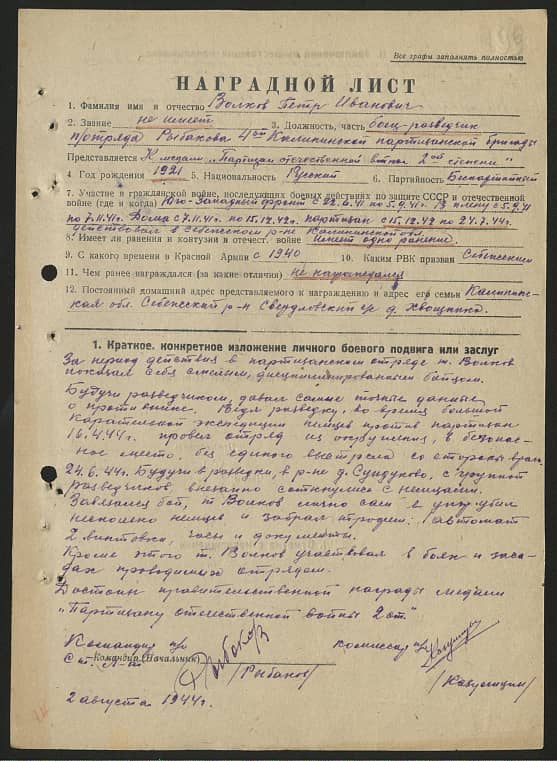 Все графы заполнять полностью
НАГРАДНОЙ ЛИСТ
1. Фамилия имя и отчество Волков Петр Иванович
2. Звание не имеет 3. Должность, часть боец-разведчик
п/отряда Рыбакова 4ой Калининской партизанской бригады
Представляется К медали „Партизан отечественной втной 2ой степени"
4. Год рождения 1921 5. Национальность Русский 6. Партийность Беспартийный
7. Участие в гражданской войне, последующих боевых действиях по защите СССР и отечественной
войне (где и когда) Юго-Западный фронт с 22.6.41 по 5.9.41. В плену с 5.9.41
по 7.11.41г. Дома с 7.11.41г. по 15.12.42г. партизан с 15.12.42 по 24.7.44г.
действовал в Себежском р-не Калининской обл.
8. Имеет ли ранения и контузии в отечест. войне имеет одно ранение.
9. С какого времени в Красной Армии с 1940 10. Каким РВК призван Себежским
11. Чем ранее награждался (за какие отличия) не награждался
12. Постоянный домашний адрес представляемого к награждению и адрес его семьи Калинин-
ская обл. Себежский р-н Свердловский с/с д. Хвощинка.
1. Краткое, конкретное изложение личного боевого подвига или заслуг
За период действия в партизанском отряде т. Волков
показал себя смелым, дисциплинированным бойцом.
Будучи разведчиком, давал самые точные данные
о противнике. Ведя разведку, во время большой
карательной экспедиции немцев против партизан
16.4.44г. провел отряд из окружения, в безопас-
ное место, без единого выстрела со стороны врага.
24.6.44г. Будучи в разведке, в р-не д. Сундуково, с группой
разведчиков внезапно столкнулись с немцами.
Завязался бой, т. Волков лично сам уничтожил
несколько немцев и забрал трофеи: 1 автомат
2 винтовки, часы и документы.
Кроме этого т. Волков участвовал в боях и заса-
дах проводимых отрядом.
Достоин правительственной награды медали
„Партизану отечественной войны 2 ст."
Командир п/о комиссар п/о
Ст. л-т Командир (Начальник)
/Рыбаков/
2 августа 1944г.